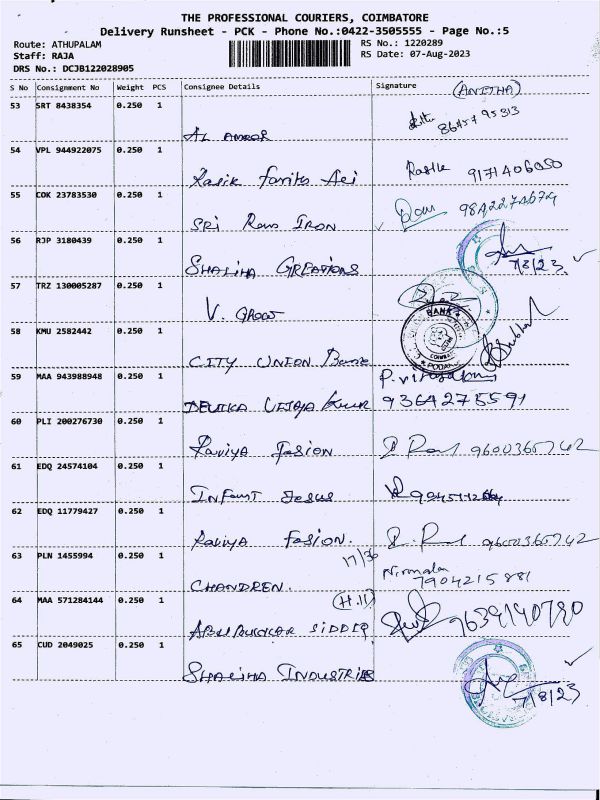 THE PROFESSIONAL COURIERS, COIMBATORE
Delivery Runsheet - PCK - Phone No.:0422-3505555 - Page No.:5
Route: ATHUPALAM RS No.: 1220289
Staff: RAJA RS Date: 07-Aug-2023
DRS No.: DCJB122028905
S No Consignment No Weight PCS Consignee Details Signature (ANITHA)
53 SRT 8438354 0.250 1
AL
54 VPL 944922075 0.250 1
Rasik
55 COK 23783530 0.250 1
SRI Ram IRON
56 RJP 3180439 0.250 1
SHALIHA CREATIONS 7/8/23
57 TRZ 130005287 0.250 1
V.
BANK
58 KMU 2582442 0.250 1
PODAN
CITY UNION Bank
59 MAA 943988948 0.250 1
DEVIKA VIJAYA 9364275591
60 PLI 200276730 0.250 1
Raviya Fasion 9600365742
61 EDQ 24574104 0.250 1
INFANT JESUS
62 EDQ 11779427 0.250 1
Raviya Fasion. 9600365742
17/36
63 PLN 1455994 0.250 1
Nirmala
CHANDREN. 7904215881
64 MAA 571284144 0.250 1 (H.11)
ABUBUCKKAR SIDDIQ 9639140780
65 CUD 2049025 0.250 1
SHALIHA INDUSTRIES 7/8/23